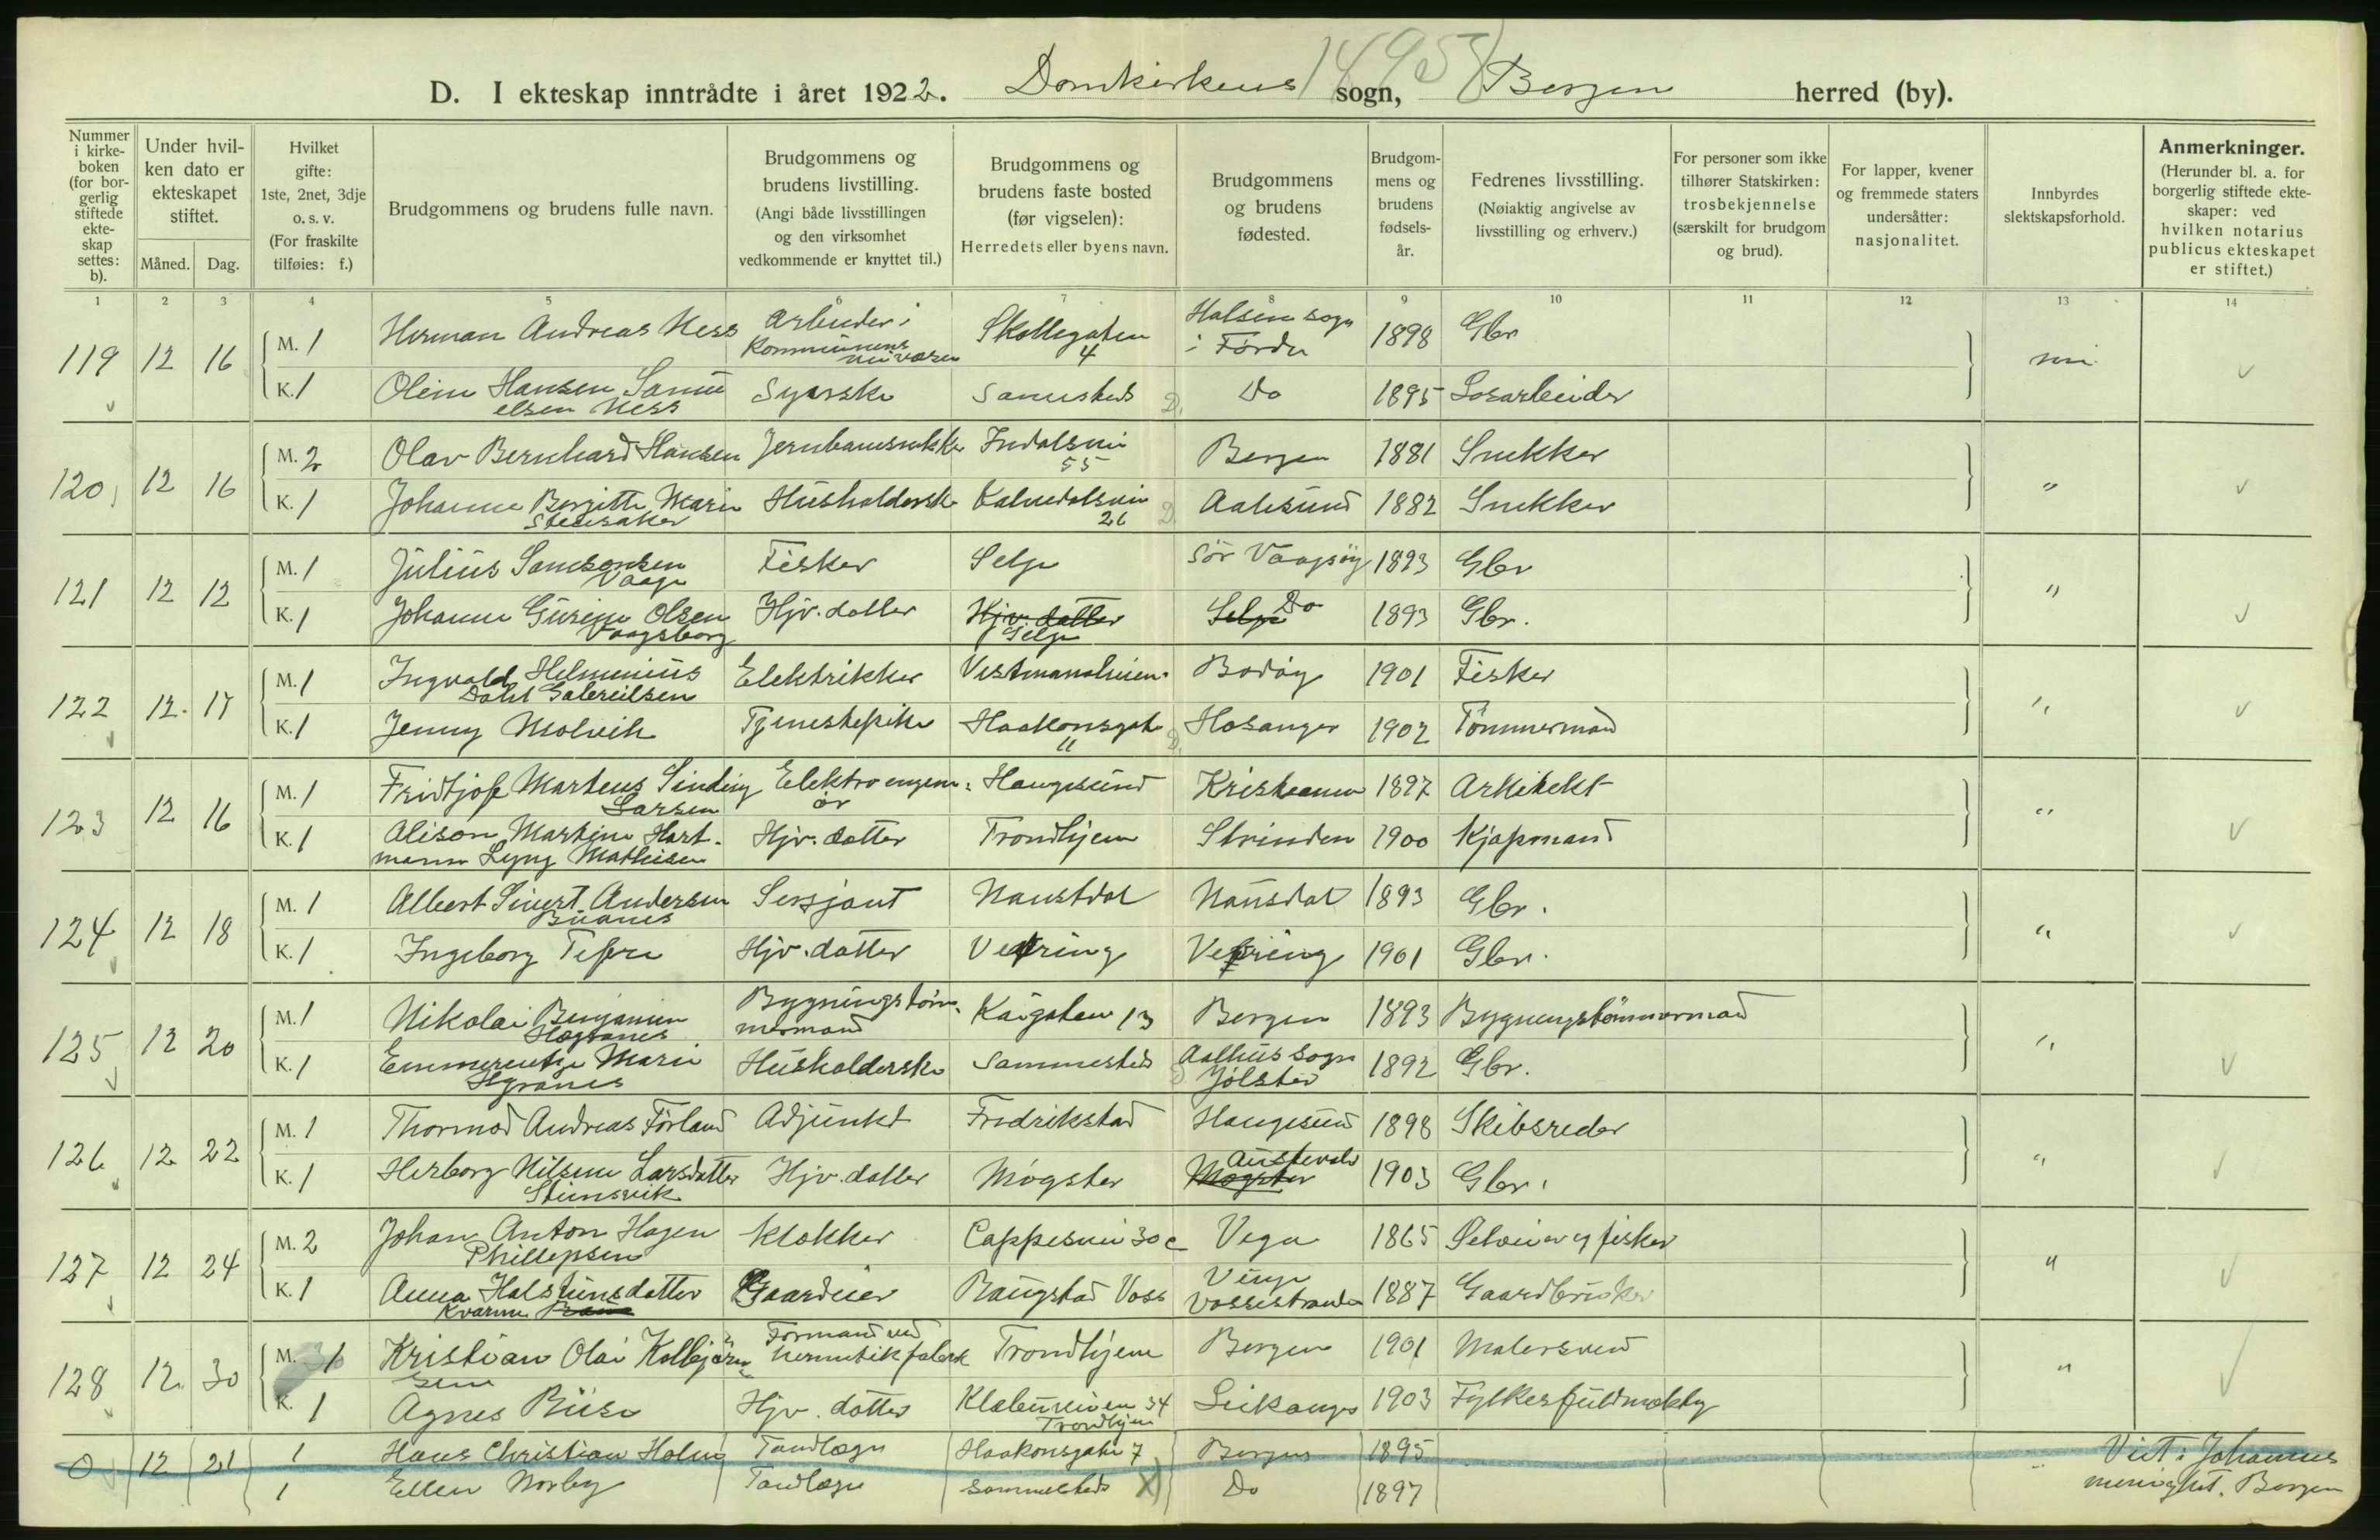 D. I ekteskap inntrådte i året 1922. Domkirkens sogn, Bergen herred (by).
1495
Nummer i kirkeboken (for borgerlig stiftede ekteskap settes: b).
Under hvilken dato er ekteskapet stiftet.
Måned. Dag.
Hvilket gifte: 1ste, 2net, 3dje o. s. v. (For fraskilte tilføies: f.)
Brudgommens og brudens fulle navn.
Brudgommens og brudens livstilling. (Angi både livsstillingen og den virksomhet vedkommende er knyttet til.)
Brudgommens og brudens faste bosted (før vigselen): Herredets eller byens navn.
Brudgommens og brudens fødested.
Brudgommens og brudens fødselsår.
Fedrenes livsstilling. (Nøiaktig angivelse av livsstilling og erhverv.)
For personer som ikke tilhører Statskirken: trosbekjennelse (særskilt for brudgom og brud).
For lapper, kvener og fremmede staters undersåtter: nasjonalitet.
Innbyrdes slektskapsforhold.
Anmerkninger. (Herunder bl. a. for borgerlig stiftede ekteskaper: ved hvilken notarius publicus ekteskapet er stiftet.)
1 2 3 4 5 6 7 8 9 10 11 12 13 14
119 12 16 M. 1 Herman Andreas Ness Arbeider i Kommunens Skottegaten 4 Halsen sogn i Førde 1898 Gbr nei
K. 1 Oline Hansen Samuelsen Ness Syerske Sammesteds Do 1895 Løsarbeider
120 12 16 M. 2 Olav Bernhard Hansen Jernbanesnekker Indalsvei 55 Bergen 1881 Snekker "
K. 1 Johanne Bergitte Marie Stensaker Husholderske Kalvedalsvei 26 Aalesund 1882 Snekker
121 12 12 M. 1 Julius Samsonsen Vaage Fisker Selje Sør Vaagsøy 1893 Gbr "
K. 1 Johanne Gurine Olsen Vaagsborg Hjv. datter Hjv. datter Selje Selje Do 1893 Gbr.
122 12 17 M. 1 Ingvald Helminius Dahl Gabreilsen Elektrikker Vestmanalien Bodøy 1901 Fisker "
K. 1 Jenny Molvik Tjenestepike Haakonsgate 11 Hosanger 1902 Tømmermand
123 12 16 M. 1 Fridtjof Martens Sinding Larsen Elektroengeniør Haugesund Kristiania 1897 Arkitekt "
K. 1 Alison Martine Hartmann Lyng Mathisen Hjv. datter Trondhjem Strinden 1900 Kjøpmand
124 12 18 M. 1 Albert Sivert Andersen Buanes Sersjant Naustdal Nausdal 1893 Gbr. "
K. 1 Ingeborg Tefre Hjv. datter Vevring Vevring 1901 Gbr.
125 12 20 M. 1 Nikolai Benjamin Bygningstømmermand Kaigaten 13 Bergen 1893 Bygningstømmermand "
K. 1 Emmerentse Marie Husholderske Sammesteds Aalhus sogn Jølster 1892 Gbr.
126 12 22 M. 1 Thormod Andreas Førland Adjunkt Fredrikstad Haugesund 1898 Skibsreder "
K. 1 Herborg Nilsine Larsdatter Stensvik Hjv. datter Møgster Møgster Austevold 1903 Gbr.
127 12 24 M. 2 Johan Anton Hagen Phillepsen Klokker Cappesvei 30c Vega 1865 Selveier og fisker "
K. 1 Anna Halstensdatter Kvarme Gaardeier Raugstad Voss Vinje Vossestranden 1887 Gaardbruker
128 12 30 M. 1 Kristian Olai Kolbjørnsen Formand ved hermetikfabrik Trondhjem Bergen 1901 Malersvend "
K. 1 Agnes Hjv. datter Klæbuveien 34 Trondhjem Leikanger 1903 Fylkesfuldmektig
0 12 21 1 Hans Christian Holm Tandlæge Haakonsgate 7 Bergen 1895 Viet: Johannes
1 Ellen Norby Tandlæge Sammesteds X) Do 1897 menighet. Bergen